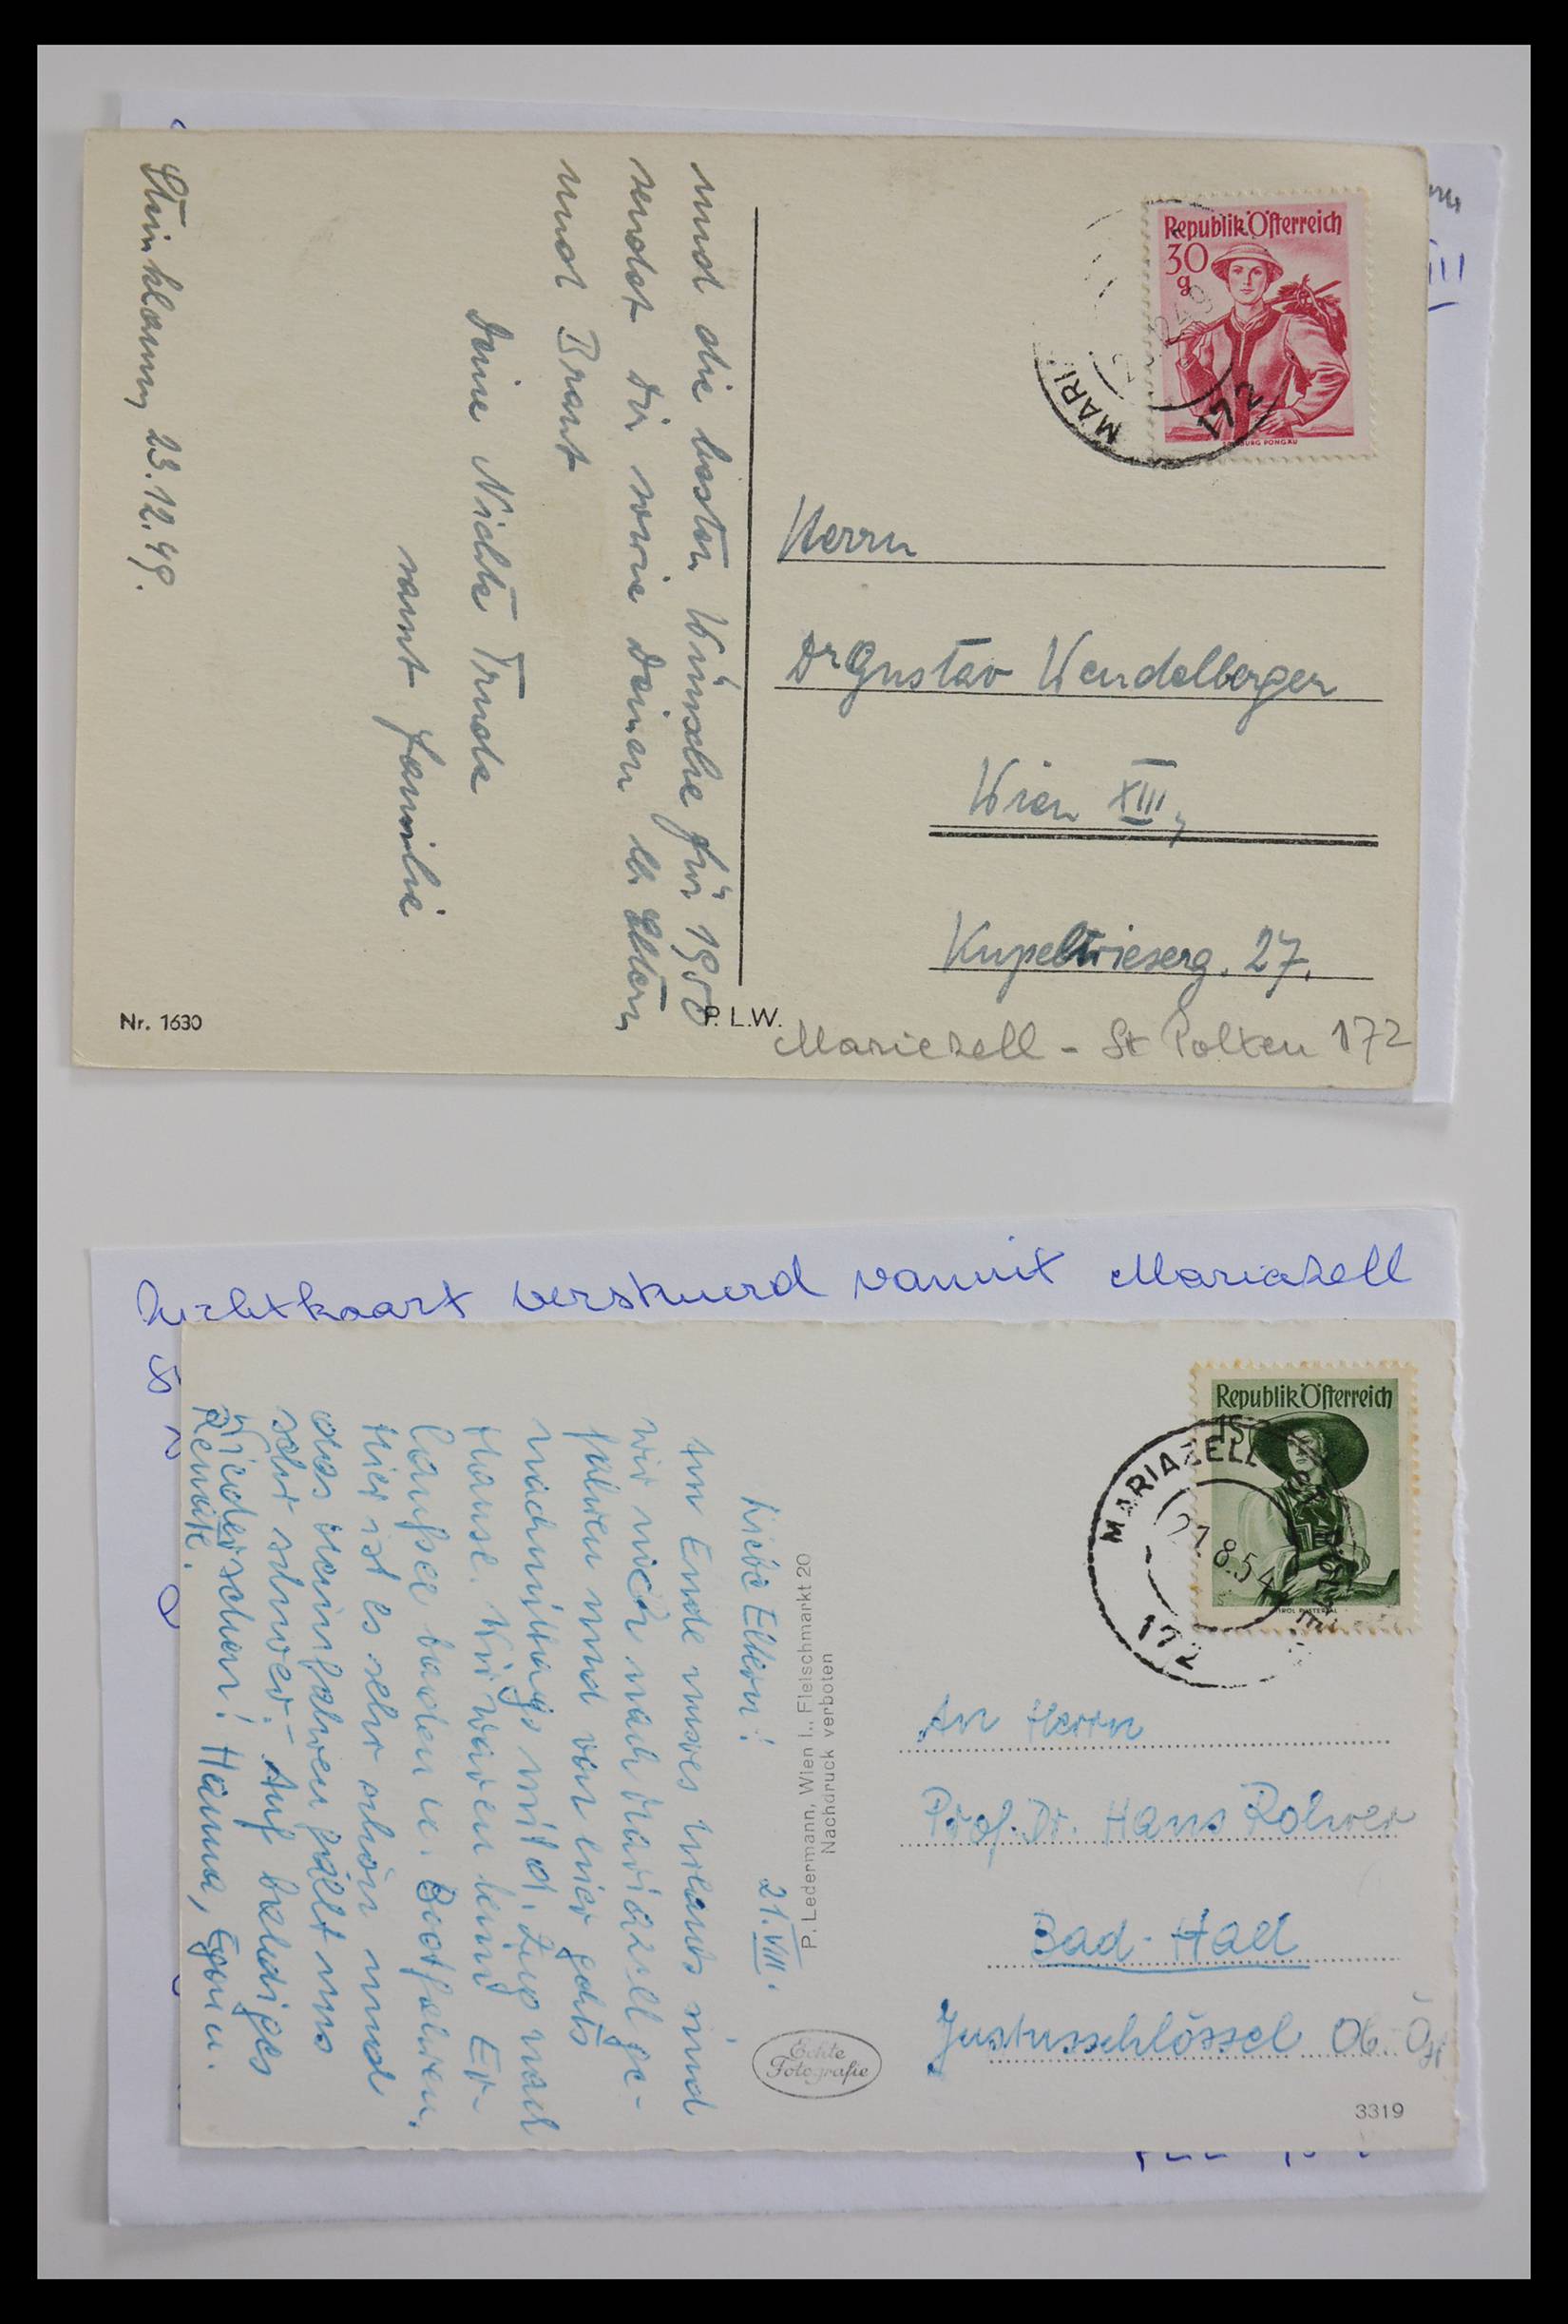 Republik Österreich
30
g
SALZBURG PONGAU
MARI
172
Herrn
Dr Gustav Wendelberger
Wien XIII,
Kupelwieserg. 27.
Mariezell - St Polten 172
und die besten Wünsche für 1950
sendet Dir sowie Deinen lb. Eltern
und Braut
Deine Nichte Trude
samt Familie
Steinklamm, 23.12.49.
Nr. 1630
P. L. W.
III
Zichtkaart verstuurd vanuit Mariazell
Republik Österreich
TIROL PUSTERTAL
MARIAZELL
27.8.54
172
An Herrn
Prof. Dr. Hans Rohrer
Bad-Hall
Justusschlössel Ob. Öst
3319
P. Ledermann, Wien I., Fleischmarkt 20
Nachdruck verboten
Echte
Fotografie
Liebe Eltern! 21. VIII.
Am Ende unsres Urlaubs sind
wir noch nach Mariazell ge-
fahren und von hier gehts
nachmittags mit d. Zug nach
Hause. Wir waren beim Er-
laufsee baden u. Bootfahren.
Hier ist es sehr schön und
das Heimfahren fällt uns
sehr schwer. - Auf baldiges
Wiedersehen! Hanna, Egon u.
Renate.